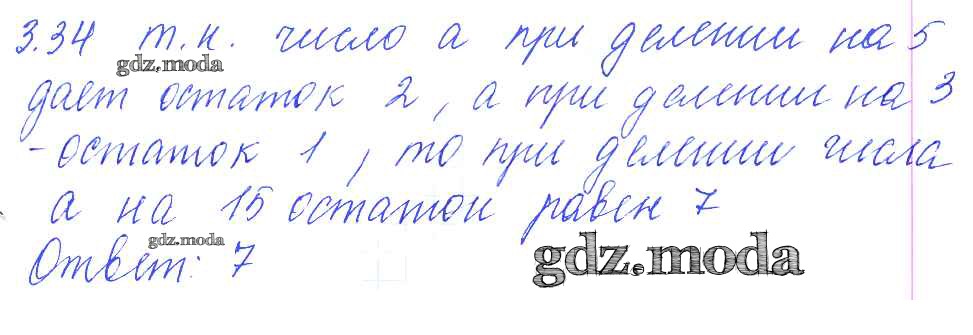 3.34 т.к. число а при делении на 5
gdz.moda
дает остаток 2, а при делении на 3
- остаток 1, то при делении числа
а на 15 остаток равен 7
gdz.moda
Ответ: 7
gdz.moda